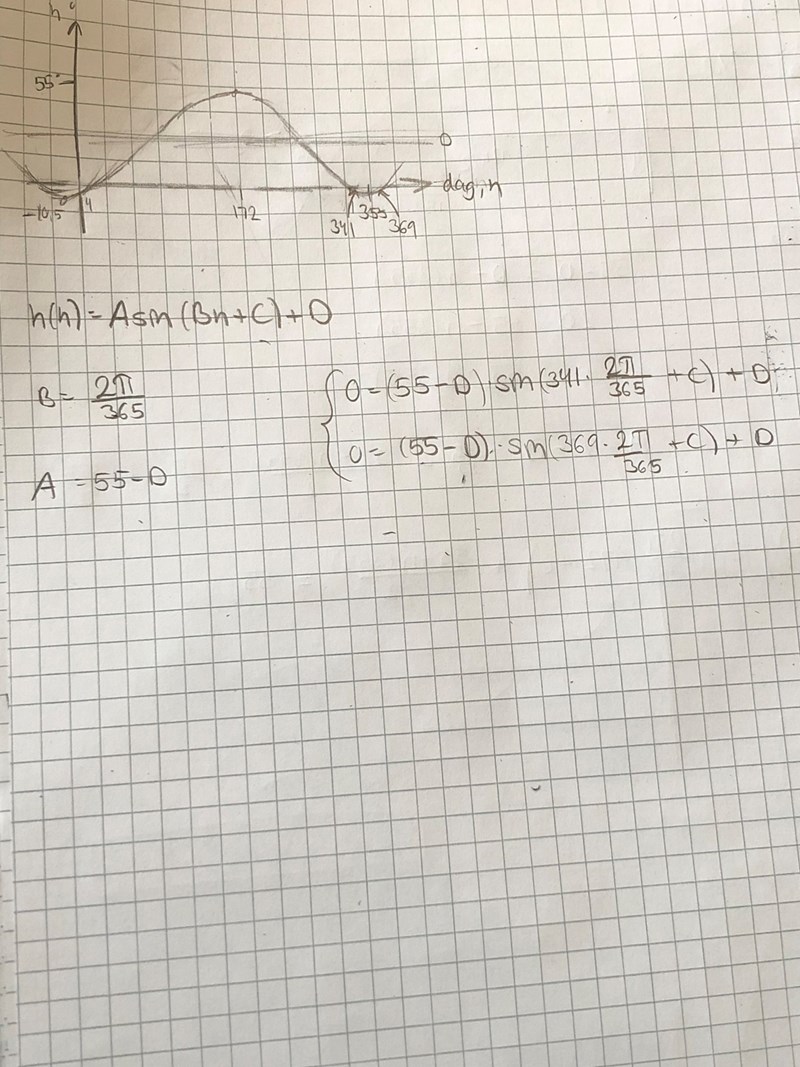 h°
55°
D
dag, n
-10,5
0
4
172
341
355
369
h(n) = A sin (Bn + C) + D
B = 2π/365
A = 55 - D
0 = (55 - D) · sin(341 · 2π/365 + C) + D
0 = (55 - D) · sin(369 · 2π/365 + C) + D